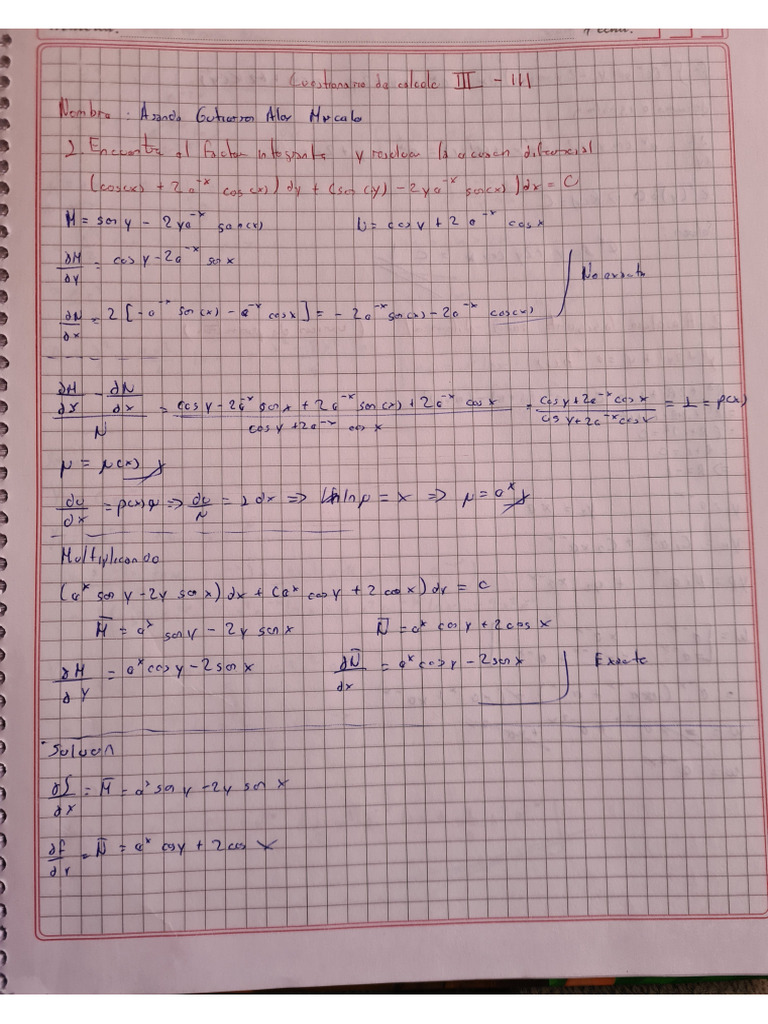 Fecha:
Cuestionario de calculo III - III
Nombre:
2. Encuentre el factor integrante y resolver la ecuacion diferencial
(cos(x) + 2e^-x cos(x))dy + (sen(y) - 2ye^-x sen(x))dx = C
M = sen y - 2ye^-x sen(x) N = cos y + 2e^-x cos x
∂M/∂y = cos y - 2e^-x sen x
No exacta
∂N/∂x = 2[-e^-x sen(x) - e^-x cos x] = -2e^-x sen(x) - 2e^-x cos(x)
(∂M/∂y - ∂N/∂x)/N = (cos y - 2e^-x sen x + 2e^-x sen(x) + 2e^-x cos x)/(cos y + 2e^-x cos x) = (cos y + 2e^-x cos x)/(cos y + 2e^-x cos x) = 1 = p(x)
μ = μ(x)
du/dx = p(x)μ => du/μ = 1dx => ln μ = x => μ = e^x
Multiplicando
(e^x sen y - 2y sen x)dx + (e^x cos y + 2 cos x)dy = C
M̄ = e^x sen y - 2y sen x N̄ = e^x cos y + 2 cos x
∂M/∂y = e^x cos y - 2 sen x ∂N̄/dx = e^x cos y - 2 sen x Exacta
Solucion
∂f/∂x = M̄ = e^x sen y - 2y sen x
∂f/∂y = N̄ = e^x cos y + 2 cos x